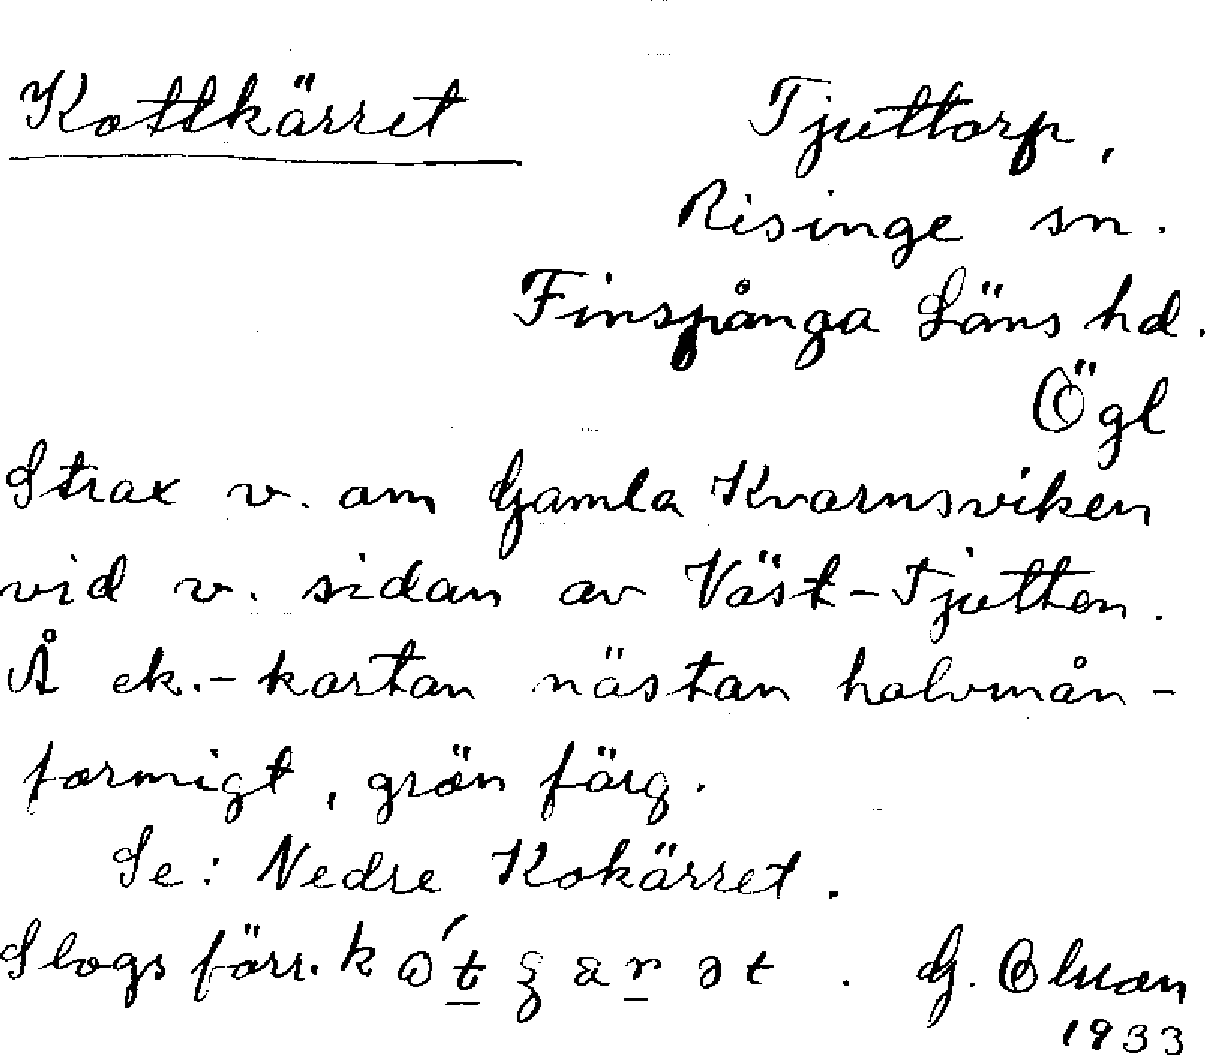 Kottkärret Tjuttorp,
Risinge sn.
Finspånga Läns hd.
Ögl
Strax v. om Gamla Kvarnsviken
vid v. sidan av Väst-Tjutten.
Å ek.-kartan nästan halvmån-
formigt, grön färg.
Se: Nedre Kokärret.
Slogs förr. G.
1933